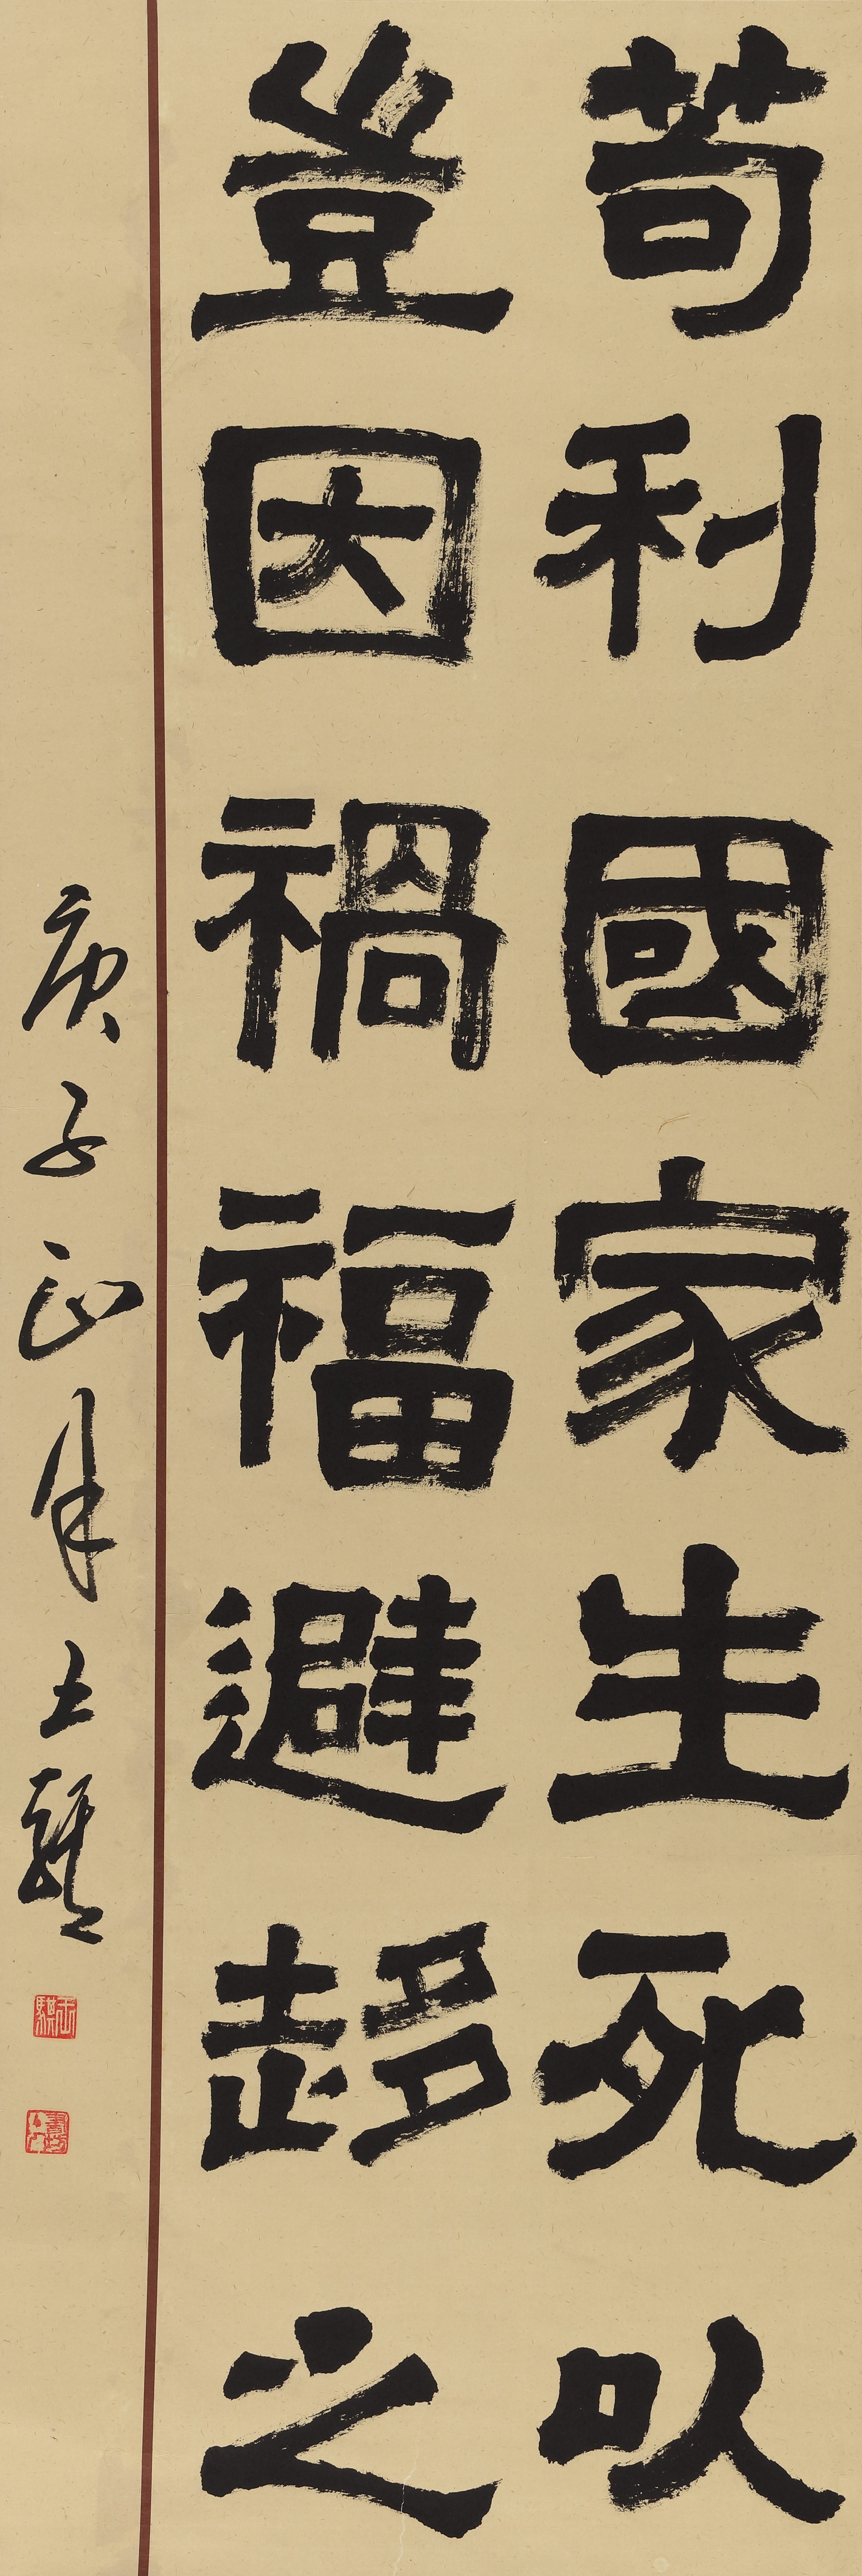 苟利國家生死以
豈因禍福避趋之
庚子正月王騏